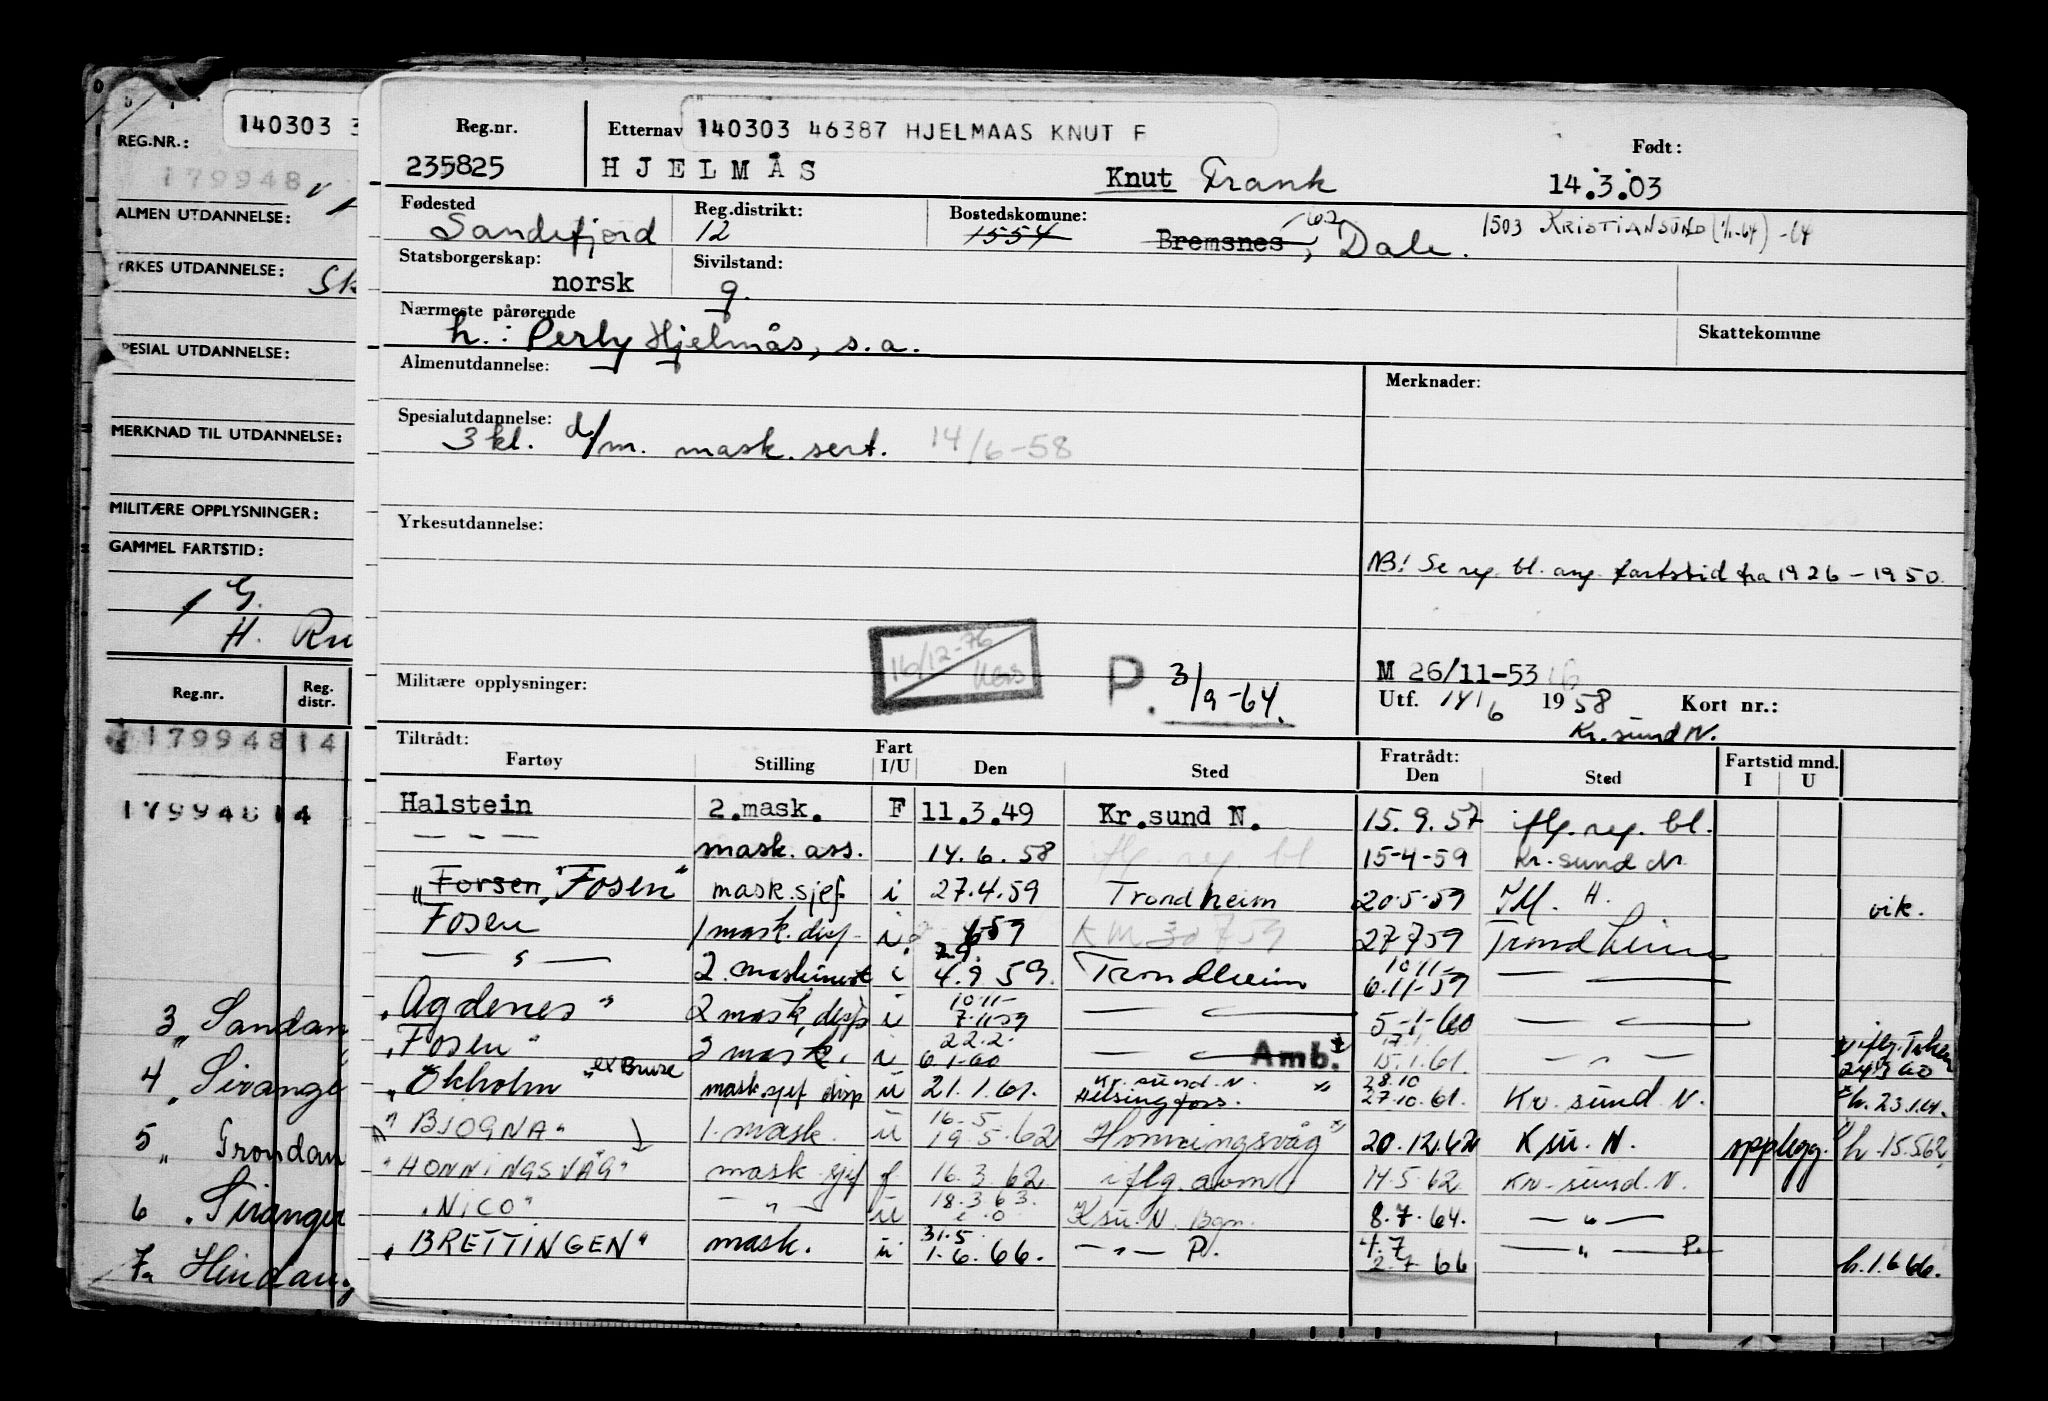 140303 3
REG.NR.:
179948
ALMEN UTDANNELSE:
YRKES UTDANNELSE: Sk
SPESIAL UTDANNELSE:
MERKNAD TIL UTDANNELSE:
MILITÆRE OPPLYSNINGER:
GAMMEL FARTSTID:
G.
H. Ru
Reg.nr. Reg. distr.
179948 14
179948 14
3 „ Sandan
4 „ Sirange
5 „ Grondan
6 „ Siranger
7 „ Hindang
Reg.nr. Etternav 140303 46387 HJELMAAS KNUT F Født:
235825 HJELMÅS Knut Frank 14.3.03
Fødested Reg.distrikt: Bostedskomune: 62 1503 KRISTIANSUND (1/1-64) -64
Sandefjord 12 1554 Bremsnes, Dale.
Statsborgerskap: Sivilstand:
norsk g.
Nærmeste pårørende Skattekomune
h.: Perly Hjelmås, s.a.
Almenutdannelse: Merknader:
Spesialutdannelse:
3 kl. d/m. mask. sert. 14/6-58
Yrkesutdannelse:
NB! Se reg. bl. ang. fartstid fra 1926 – 1950.
16/12-76
Militære opplysninger: P. 3/9-64. M 26/11-53
Utf. 14/6 1958 Kort nr.:
Kr.sund N.
Tiltrådt: Fart Fratrådt: Fartstid mnd.
Fartøy Stilling I/U Den Sted Den Sted I U
Halstein 2.mask. F 11.3.49 Kr.sund N. 15.9.57 iflg. reg. bl.
— — — mask. ass. 14.6.58 iflg. reg bl 15-4-59 Kr. sund N.
„ Forsen "Fosen" mask.sjef i 27.4.59 Trondheim 20-5-59 vik.
Fosen 1 mask. disp i 59 27759 Trondheim
— „ — 2. maskinist i 4.9.59. Trondheim 10.11- 6.11-59 — —
„ Agdenes " 2 mask. disp i 10.11- 7.11.59 — — 5-1-60 — —
„ Fosen " 2 mask. i 22.2. 6.1.60 — — Amb. 15.1.61. — „ —
„ Ekholm " ex Bruse mask.sjef disp u 21.1.61. Kr. sund. N. Helsingfors. 28.10 27.10.61. Kr. sund N. h. 23.1.61.
" BJOGNA " 1. mask. u 16-5 19.5.62 Honningsvåg 20.12.62 Ksu. N. opplegg. h. 15.562
" HONNINGSVÅG " mask sjef f 16.3.62 iflg. avm 14.5.62 Kr. sund. N.
„ NICO " — „ — u 18.3.63. Ksu. N. Bgn. 8.7.64. — „ —
„ BRETTINGEN " mask. u 31.5. 1.6.66. — „ — P. 4.7 2.7 66 — „ — P. h.1.6.66.